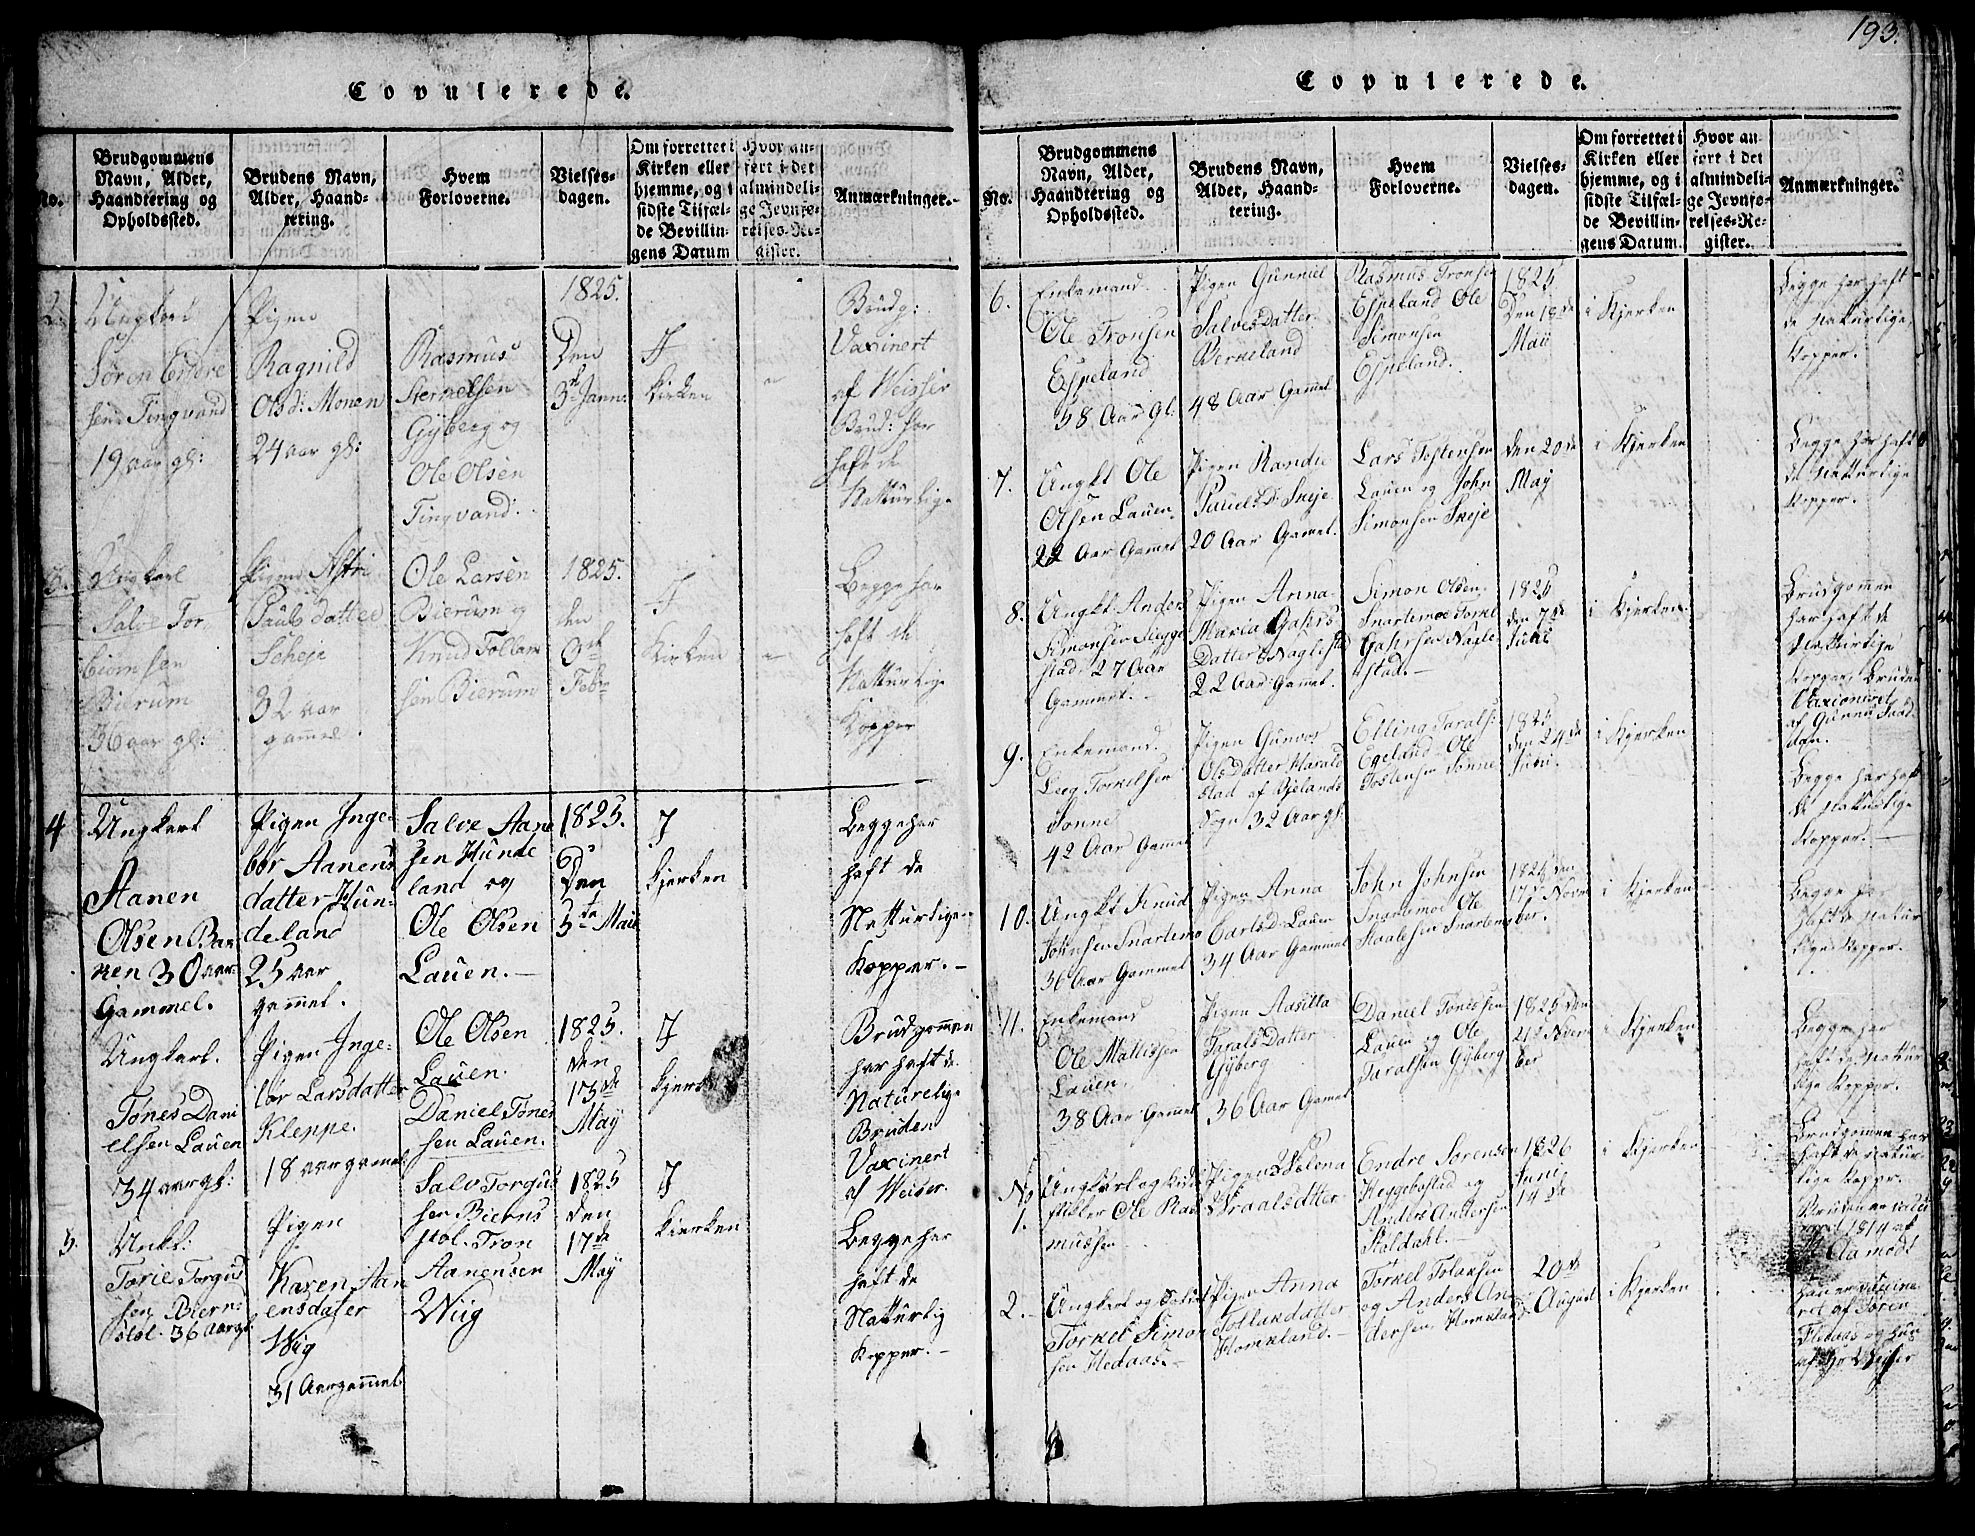 193.
Copulerede.
No.
Brudgommens
Navn, Alder,
Haandtering og
Opholdssted.
Brudens Navn,
Alder, Haand-
tering.
Hvem
Forloverne.
Vielses-
dagen.
Om forrettet i
Kirken eller
hjemme, og i
sidste Tilfæl-
de Bevillin-
gens Datum
Hvor an-
ført i det
almindeli-
ge Jevnfø-
relses-Re-
gister.
Anmærkninger.
2.
Ungkarl
Søren
sen Tingvand
19 aar gl:
Pigen
Ragnild
Olsd: Monen
24 aar gl:
Rasmus
Gyberg og
Ole Olsen
Tingvand:
1825.
Den
3de Janu:
I
Kirken
Brudg:
Vaxinert
af Weisser
Brud: har
haft de
Natturlige
3.
Ungkarl
Salve Tor
biørnsen
Bierum
36 aar gl:
Pigen Astri
Pauls datter
Scheje
32 aar
gammel
Ole Larsen
Bierum og
Knud Tollaks
sen Bierum
1825.
den
9de
Febr
I
Kirken
Begge har
haft de
Natturlige
Kopper
4
Ungkarl
Aanen
Olsen Ban
nen 30 aar
Gammel.
Pigen Inge-
bør Aanens
datter Hun-
deland
25 aar
gammel.
Salve Aane
sen Hunde
land og
Ole Olsen
Lauen.-
1825.
Den
5te Maii
I
Kjerken
Begge har
haft de
Natturlige
Kopper.-
Ungkarl.
Tønes Dani
elsen Lauen
34 aar gl:
Pigen Inge-
bør Larsdatter
Kleppe.
18 aar gamel
Ole Olsen
Lauen.
Daniel Tønes
sen Lauen.
1825.
den
13de
May
I
Brudgommen
har haft de
Naturelige
Bruden
Vaxinert
af Weiser.
5.
Unkl:
Torie Torgus
sen Biern
støl. 36 Aar gl.
Pigen
Karen Aan
ensdater
Wiig
31 Aar gammel.
Salv Torgus
sen Bierns
støl. Tron
Aanensen
Wiig
1825
den
17de
May
I
Kierken
Begge har
haft de
Natturlig
Kopper.-
Copulerede.
No.
Brudgommens
Navn, Alder,
Haandtering og
Opholdssted.
Brudens Navn,
Alder, Haand-
tering.
Hvem
Forloverne.
Vielses-
dagen.
Om forrettet i
Kirken eller
hjemme, og i
sidste Tilfæl-
de Bevillin-
gens Datum
Hvor an-
ført i det
almindeli-
ge Jevnfø-
relses-Re-
gister.
Anmærkninger.
6.
Enkemand.
Ole Tronsen
Espeland
58 Aar gl:
Pigen Gunniel
Salvesdatter
Berneland
48 Aar Gammel
Rasmus Tronsen
Espeland Ole
Simonsen
Espeland.
1825
Den 18de
Maii
i Kjerken
Begge har haft
de naturlige
Kopper.
7.
Ungkl Ole
Olsen Lauen.
22 Aar Gammel
Pigen Randie
Pauels D: Skeje
20 Aar Gamel.
Lars Tostensen
Lauen og John
Simonsen Skeje
den 20de
May
i Kjerken
Begge har haft
de Natturlige
Kopper.
8.
Ungkl Anders
Simonsen
stad 27 Aar
Gammel.-
Pigen Anna
Maria Gahrs
Datter Naglestad
22 Aar Gammel.
Simon Olsen
Snartemoe Torkel
Gahrsen Nagle
stad.-
1825
den 7de
Juni
i Kjerken
Brudgommen
har haft de
Natturlige
Kopper, Bruden
Vaxioneret
9.
Enkemand.
Leeg Torkelsen
Tonne
42 Aar Gamel
Pigen Gunvor
Olsdatter Harald
stad af Bjelands
Sogn 32 Aar gl.
Elling Taralds:
Egeland Ole
Tostensen Tonne
1825
den 24de
Juni.
i Kjerken
Begge har haft
de Naturlige
Kopper.-
10.
Ungkl Knud
Johnsen Snartemo
36 Aar Gammel
Pigen Anna
Carlsd. Lauen
34 Aar Gammel
John Johnsen
Snartemoe Ole
Staalesen Snartemo
1825 den
17de Novem
ber.
i Kjerken
Begge har
haft de Natur
lige Kopper.
11.
Enkemand
Ole Mattissen
Lauen.
38 Aar Gammel
Pigen Aasilla
Taralsdatter
Gyberg
36 Aar Gamel
Daniel Tønessen
Lauen og Ole
Taralsen Gyberg
1825 den
21de Novem
ber
i Kjerken
Begge har
haft de Natur
lige Kopper.
No
1.
Ungkarl og
Ole Ras
mussen
Pigen Helena
Graalsdatter
Endre Sørensen
Heggebostad og
Anders Andersen
Støldahl.-
1826
Junii
14de
i Kjerken
Brudgommen har
haft de Natur-
lige Kopper.
Bruden er
1814 af
Aamodt
2.
Ungkarl og
Torkel Simon
sen Hedaas.-
Pigen Anna
Tollaksdatter
Homeland.-
Torkel Tolaksen
og Anders An
dersen Homeland
20de
August
i Kjerken
han er vaccine
ret af Søren
Fledaas og hun
af Hr Weiser